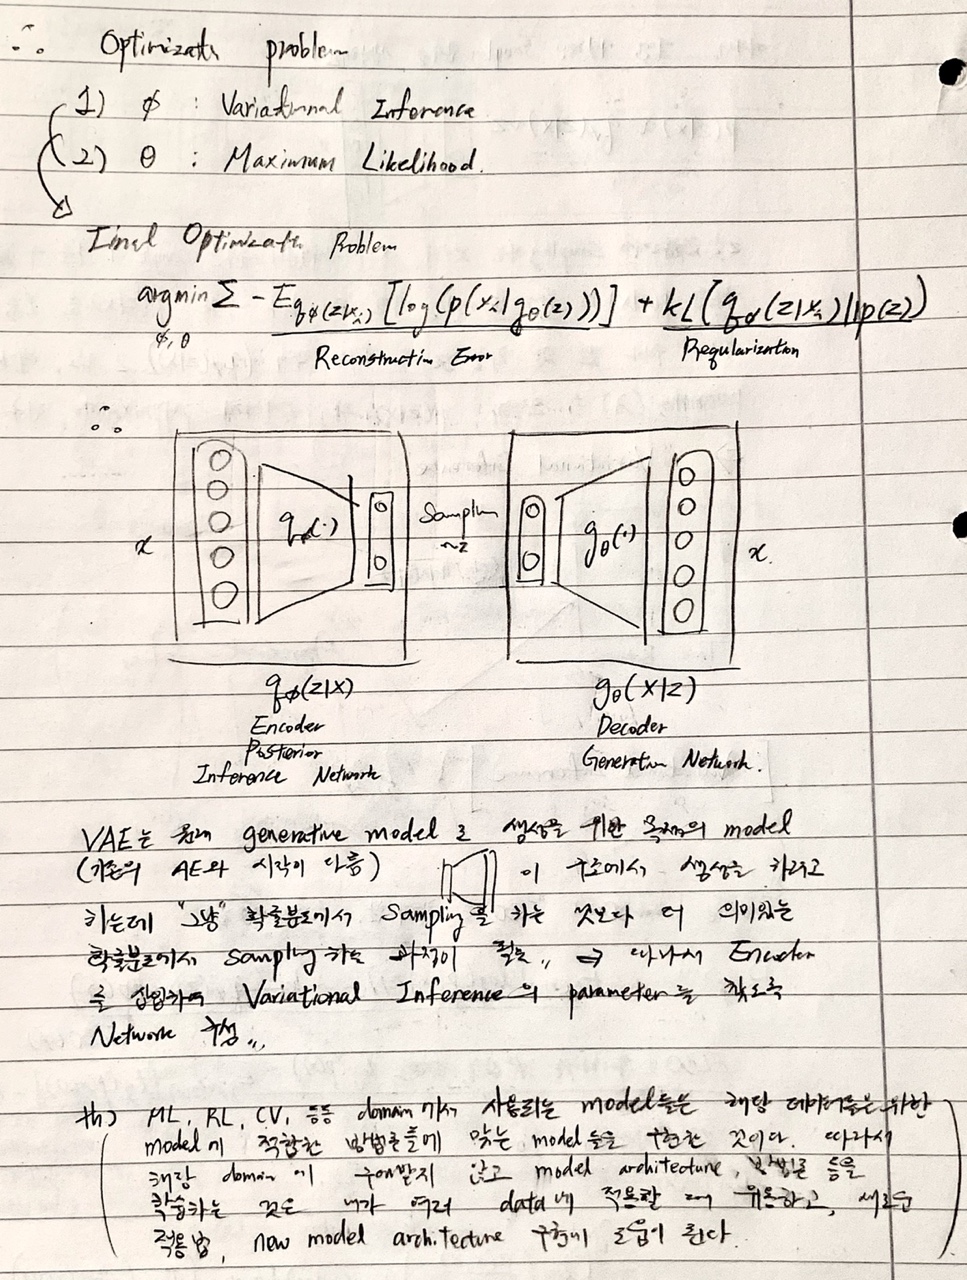 ∴ Optimizatn problem
1) ϕ : Variational Inference
2) θ : Maximum Likelihood.
Final Optimizatn Problem
argmin Σ - E_{qϕ(z|xᵢ)} [log(p(xᵢ|gθ(z)))] + KL(qϕ(z|xᵢ)||p(z))
ϕ,θ
Reconstructin Error Regularization
∴
x qϕ(·) Samplin ~z gθ(·) x.
qϕ(z|x) gθ(x|z)
Encoder Decoder
Posterior
Inference Network Generation Network.
VAE는 원래 generative model로 생성을 위한 목적의 model
(기존의 AE와 시각이 다름) 이 구조에서 생성을 하려고
하는데 "그냥" 확률분포에서 Sampling을 하는 것보다 더 의미있는
확률분포에서 sampling 하는 과정이 필요,, ⇒ 따라서 Encoder
를 삽입하여 Variational Inference의 parameter를 찾도록
Network 구성,,
ML, RL, CV, 등등 domain에서 사용되는 model들은 해당 데이터들을 위한
model에 적합한 방법론들에 맞는 model들을 구현한 것이다. 따라서
해당 domain에 구애받지 않고 model architecture, 방법론 등을
학습하는 것은 내가 여러 data에 적용할 때 유용하고, 새로운
적용법, new model architecture 구현에 도움이 된다.